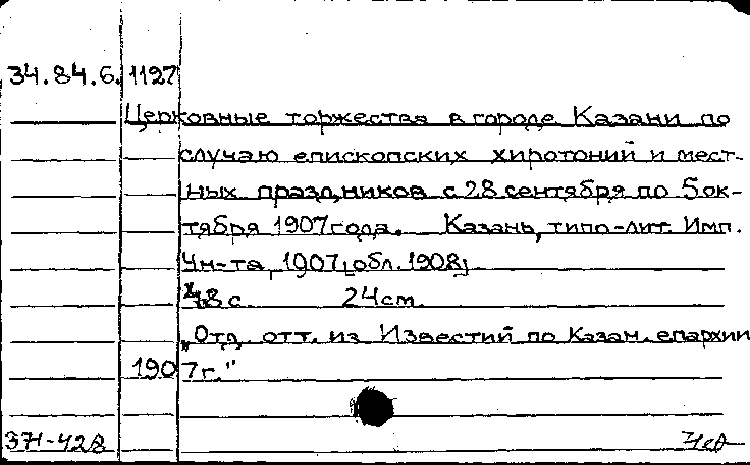 34.84.6. 1127
Церковные торжества в городе Казани по
случаю епископских хиротоний и мест-
ных праздников с 28 сентября по 5 ок-
тября 1907 года. Казань, типо-лит. Имп.
Ун-та, 1907, [обл. 1908]
48 с. 24 см.
„Отд. отт. из Известий по Казан. епархии
1907г."
371-428